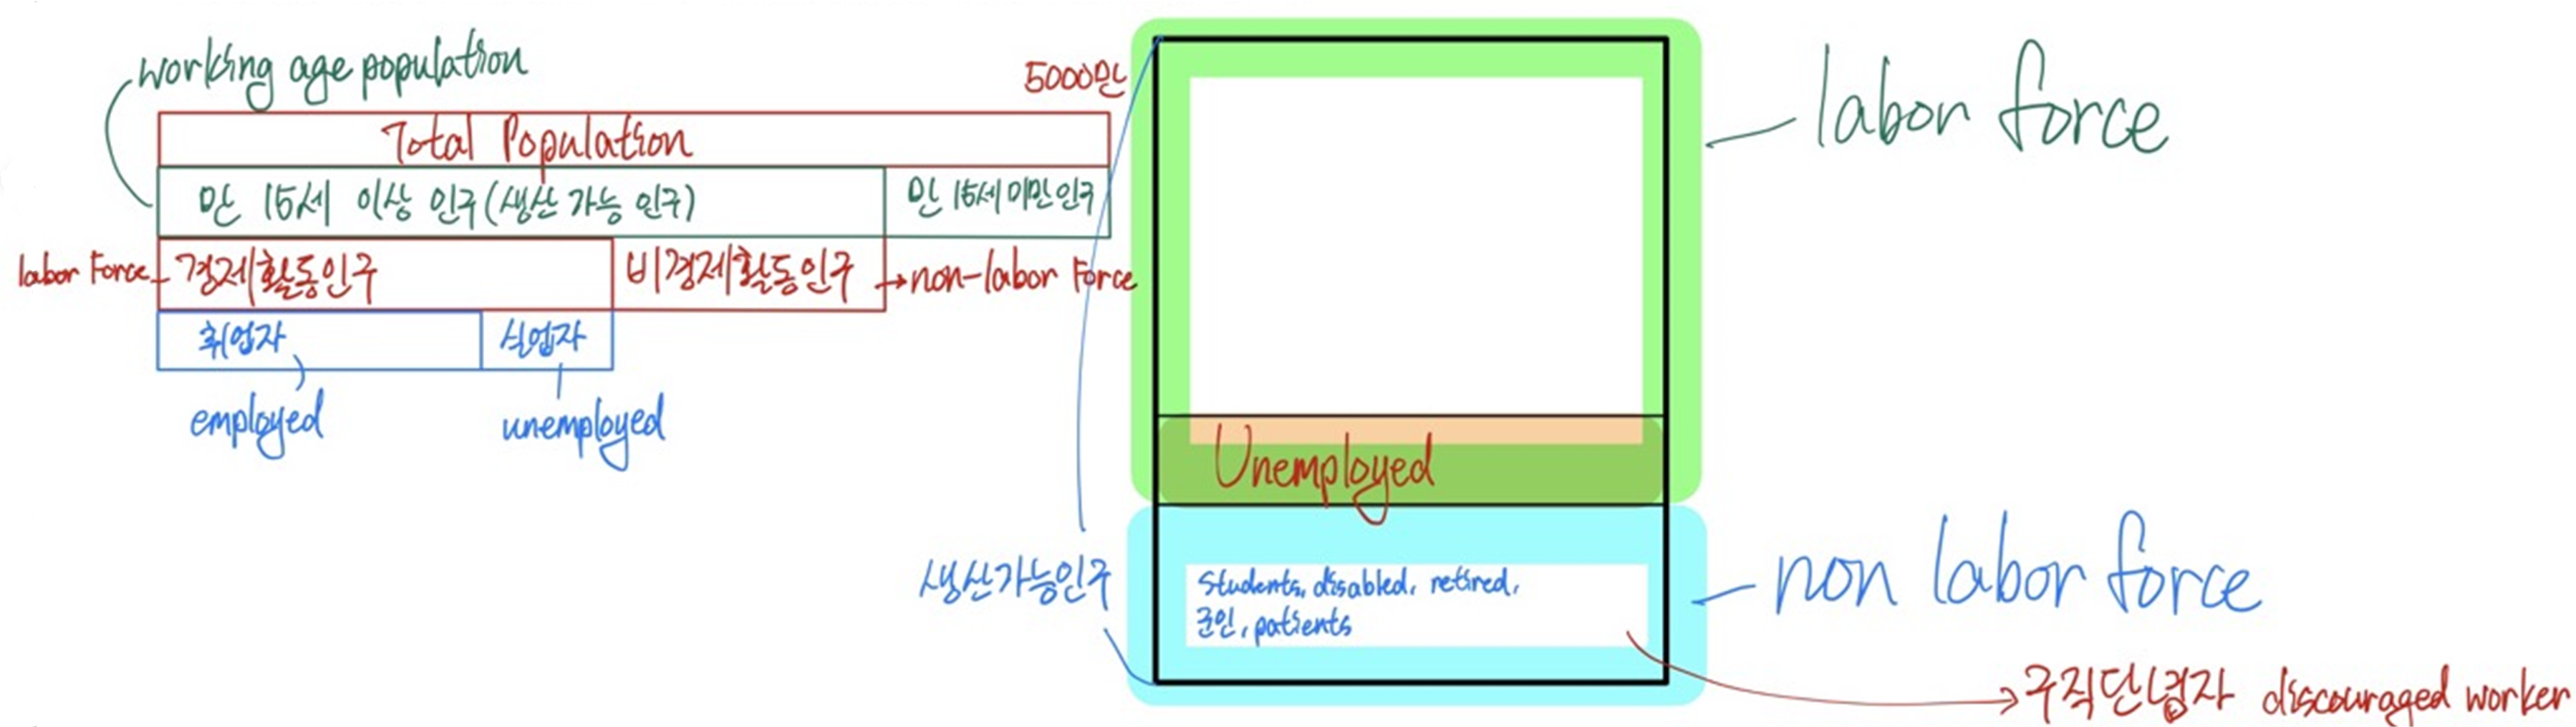 working age population
5000만
Total Population
만 15세 이상 인구(생산 가능 인구)
만 15세 미만 인구
labor Force
경제활동인구
비경제활동인구
non-labor Force
취업자
실업자
employed
unemployed
labor force
Unemployed
생산가능인구
Students, disabled, retired,
군인, patients
non labor force
구직단념자 discouraged worker